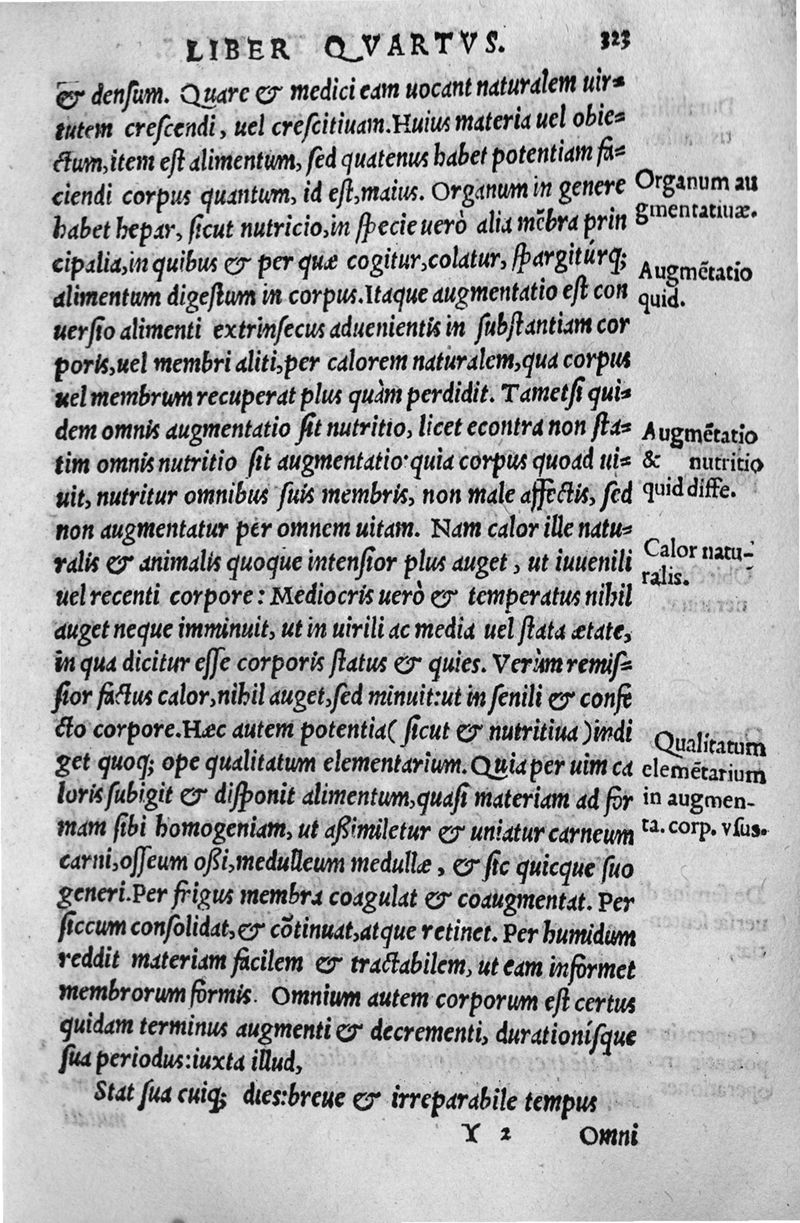 LIBER QVARTVS. 323
& densum. Quare & medici eam uocant naturalem uir-
tutem crescendi, uel crescitiuam. Huius materia uel obie-
ctum, item est alimentum, sed quatenus habet potentiam fa-
ciendi corpus quantum, id est, maius. Organum in genere
habet hepar, sicut nutricio, in specie uerò alia mẽbra prin
cipalia, in quibus & per quæ cogitur, colatur, spargitúrq;
alimentum digestum in corpus. Itaque augmentatio est con
uersio alimenti extrinsecus aduenientis in substantiam cor
poris, uel membri aliti, per calorem naturalem, qua corpus
uel membrum recuperat plus quàm perdidit. Tametsi qui-
dem omnis augmentatio sit nutritio, licet econtra non sta-
tim omnis nutritio sit augmentatio: quia corpus quoad ui-
uit, nutritur omnibus suis membris, non male affectis, sed
non augmentatur per omnem uitam. Nam calor ille natu-
ralis & animalis quoque intensior plus auget, ut iuuenili
uel recenti corpore: Mediocris uerò & temperatus nihil
auget neque imminuit, ut in uirili ac media uel stata ætate,
in qua dicitur esse corporis status & quies. Verùm remis-
sior factus calor, nihil auget, sed minuit: ut in senili & confe
cto corpore. Hæc autem potentia (sicut & nutritiua) indi
get quoq; ope qualitatum elementarium. Quia per uim ca
loris subigit & disponit alimentum, quasi materiam ad for
mam sibi homogeniam, ut assimiletur & uniatur carneum
carni, osseum ossi, medulleum medullæ, & sic quicque suo
generi. Per frigus membra coagulat & coaugmentat. Per
siccum consolidat, & cõtinuat, atque retinet. Per humidum
reddit materiam facilem & tractabilem, ut eam informet
membrorum formis. Omnium autem corporum est certus
quidam terminus augmenti & decrementi, durationísque
sua periodus: iuxta illud,
Stat sua cuiq; dies: breue & irreparabile tempus
Y 2 Omni
Organum au
gmentatiuæ.
Augmẽtatio
quid.
Augmẽtatio
& nutritio
quid diffe.
Calor natu-
ralis.
Qualitatum
elemẽtarium
in augmen-
ta. corp. vsus.